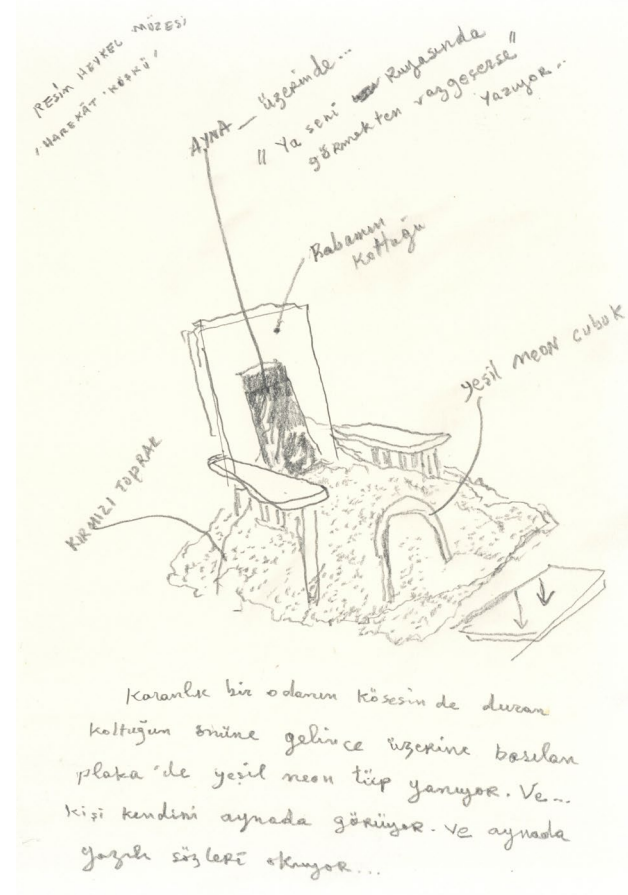 RESİM HEYKEL MÜZESİ
'HAREKÂT KÖŞKÜ'
AYNA — üzerinde...
" Ya seni rüyasında
görmekten vazgeçerse "
yazıyor..
Babamın
Koltuğu
yeşil neon çubuk
KIRMIZI TOPRAK
Karanlık bir odanın kösesin de duran
koltuğun önüne gelince üzerine basılan
plaka'de yeşil neon tüp yanıyor. Ve...
Kişi kendini aynada görüyor. Ve aynada
yazılı sözleri okuyor...